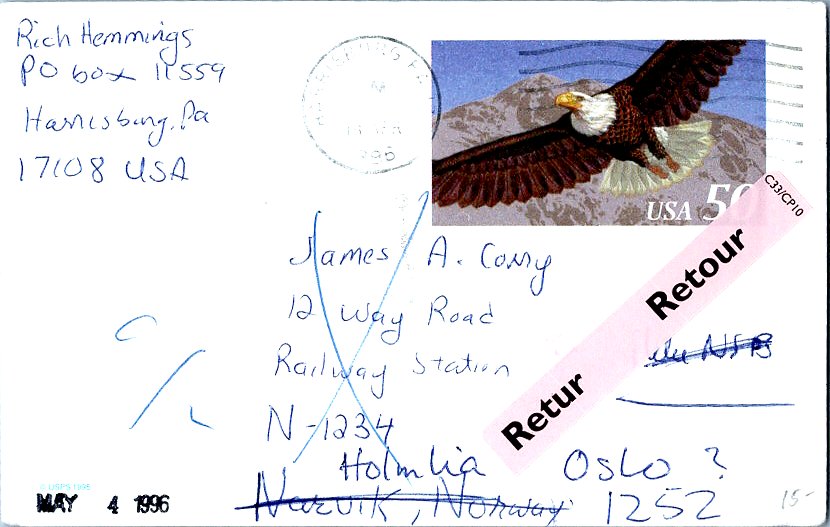 Rich Hemmings
PO box 11559
Harrisburg, Pa
17108 USA
USA 50
C33/CP10
James A. Corry
12 Way Road
Railway Station
N-1234
Narvik, Norway
Holmlia Oslo ?
1252
NSB
Retur Retour
© USPS 1995
MAY 4 1996
15-